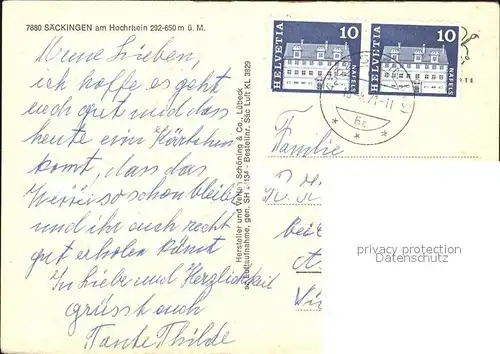 7880 SÄCKINGEN am Hochrhein 292-650 m ü. M.
Meine Lieben,
ich hoffe es geht
euch gut und dass
heute ein Kärtchen
komt, dass das
so schön bleibt
und ihr auch recht
gut erholen könnt
In Liebe und Herzlichkeit
grüsst euch
Tante Thilde
Hersteller und Verlag Schöning & Co., Lübeck
gen. SH - Bestellnr. Säc Luft KL 3929
HELVETIA 10 NÄFELS
HELVETIA 10 NÄFELS
Familie
privacy protection
Datenschutz